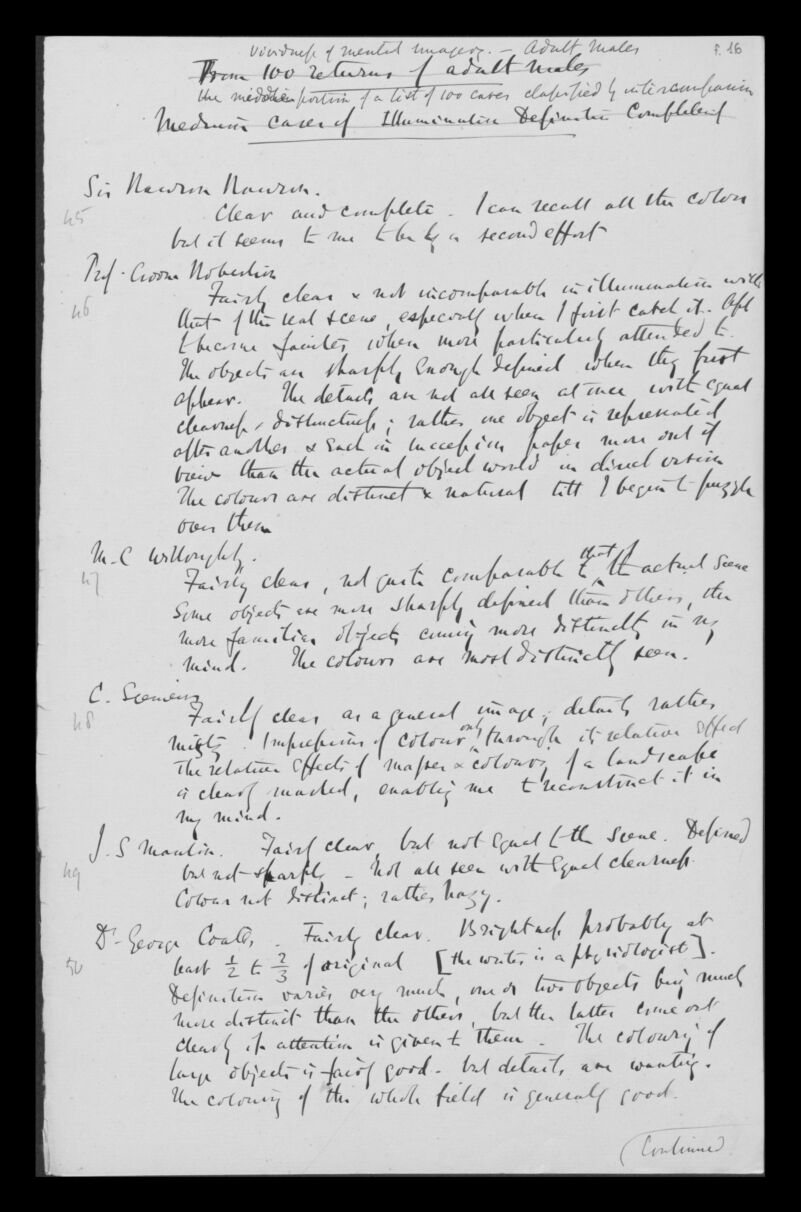 Vividness of mental imagery. - Adult Males
p. 16
From 100 returns of adult males
the middle portion of a list of 100 cases classified by intercomparison
Medium cases of Illumination Definition Completeness
Sir Rawson Rawson.
45
Clear and complete. I can recall all the colors
but it seems to me to be by a second effort
Prof. Croom Robertson
46
Fairly clear & not incomparable in illumination with
that of the real scene, especially when I first catch it. Apt
to become fainter, when more particularly attended to.
The objects are sharply enough defined when they first
appear. The details are not all seen at once with equal
clearness, distinctness; rather one object is represented
after another & each in succession passes more out of
view than the actual object would in direct vision
The colours are distinct & natural till I begin to puzzle
over them
47
Fairly clear, not quite comparable to that of the actual scene
Some objects are more sharply defined than others, the
more familiar objects coming more distinctly in my
mind. The colours are most distinctly seen.
C. Siemens
48
Fairly clear as a general image; details rather
misty. Impressions of colour only through its relative effect
The relative effects of masses & colours of a landscape
is clearly marked, enabling me to reconstruct it in
my mind.
J. S
49
Fairly clear, but not equal to the scene. Defined
but not sharply - Not all seen with equal clearness.
Colour not distinct; rather hazy.
Dr George Coates. Fairly clear. Brightness probably at
50
least 1/2 to 2/3 of original [the writer is a physiologist].
Definition varies very much, one or two objects being much
more distinct than the others, but the latter come out
clearly if attention is given to them. The colouring of
large objects is fairly good - but details are wanting.
The colouring of the whole field is generally good.
(Continued